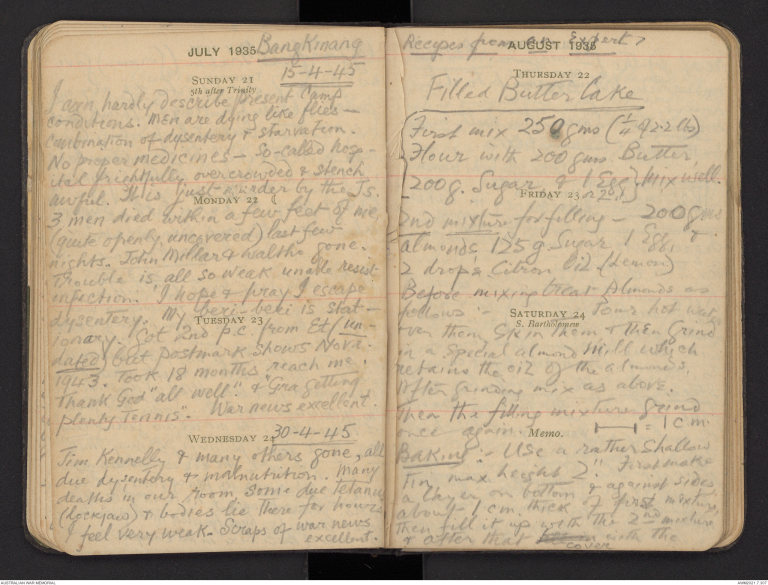 JULY 1935 Bangkinang
SUNDAY 21 15-4-45
5th after Trinity
I can hardly describe present camp
conditions. Men are dying like flies —
combination of dysentery & starvation.
No proper medicines — so-called hosp-
ital frightfully overcrowded & stench
awful. It is just murder by the Js.
MONDAY 22
3 men died within a few feet of me,
(quite openly, uncovered) last few
nights. John Millar & Waltho gone.
Trouble is all so weak unable resist
infection. I hope & pray I escape
dysentery. My beri-beri is stat-
TUESDAY 23
ionary. Got 2nd p.c. from Et (un
dated) but postmark shows Nov.
1943. Took 18 months reach me.
Thank God "all well". & "Gra getting
plenty tennis". War news excellent.
WEDNESDAY 24 30-4-45
Tim Kennelly & many others gone, all
due dysentery & malnutrition. Many
deaths in our room, some due tetanus
(lockjaw) & bodies lie there for hours
I feel very weak. Scraps of war news
excellent.
Recipes from an Expert,
AUGUST 1935
THURSDAY 22
Filled Butter Cake
First mix 250 gms (1/4 of 2.2 lbs)
Flour with 200 gms. Butter,
200 g. Sugar & 1 Egg. Mix well.
FRIDAY 23
2nd mixture for filling — 200 gms
almonds, 125 g. Sugar 1 Egg, &
2 drops Citron Oil (Lemon)
Before mixing treat Almonds as
follows :- Pour hot water
SATURDAY 24
S. Bartholomew
over them, skin them & then Grind
in a special almond Mill which
retains the oil of the almonds,
After grinding mix as above.
Then the filling mixture grind
once again. = 1 cm.
MEMO.
Baking :- Use a rather shallow
Tin, max. height 2". First make
a layer on bottom & against sides
about 1 cm thick of first mixture,
then fill it up with the 2nd mixture
& after that with the
cover
AUSTRALIAN WAR MEMORIAL